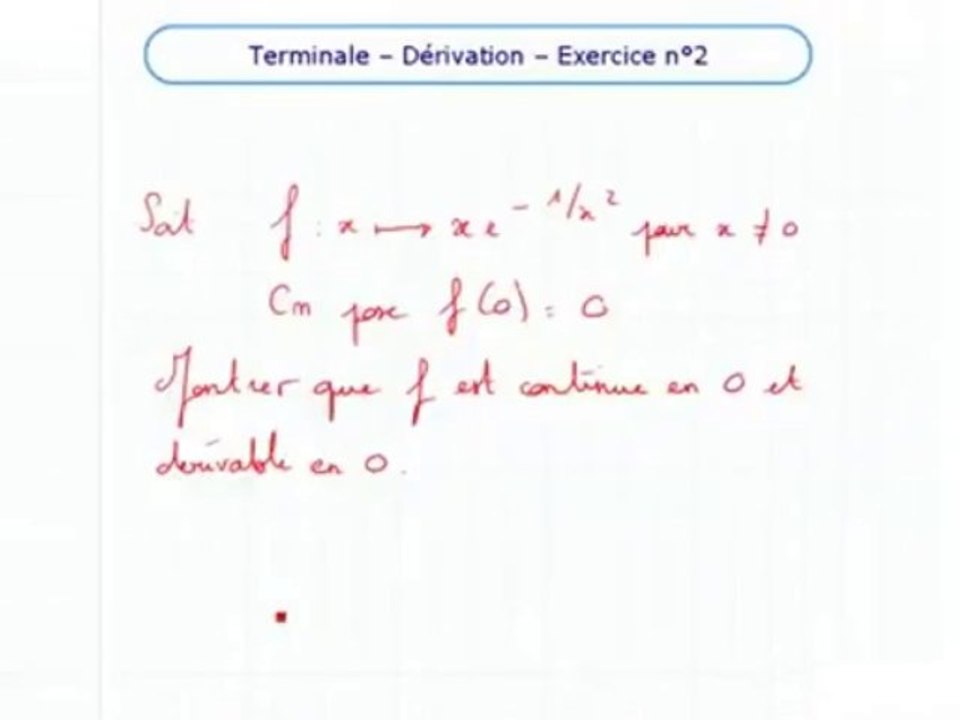 Terminale – Dérivation – Exercice n°2
Soit f : x ⟼ x e^{-1/x^2} pour x ≠ 0
On pose f(0) = 0
Montrer que f est continue en 0 et
dérivable en 0.